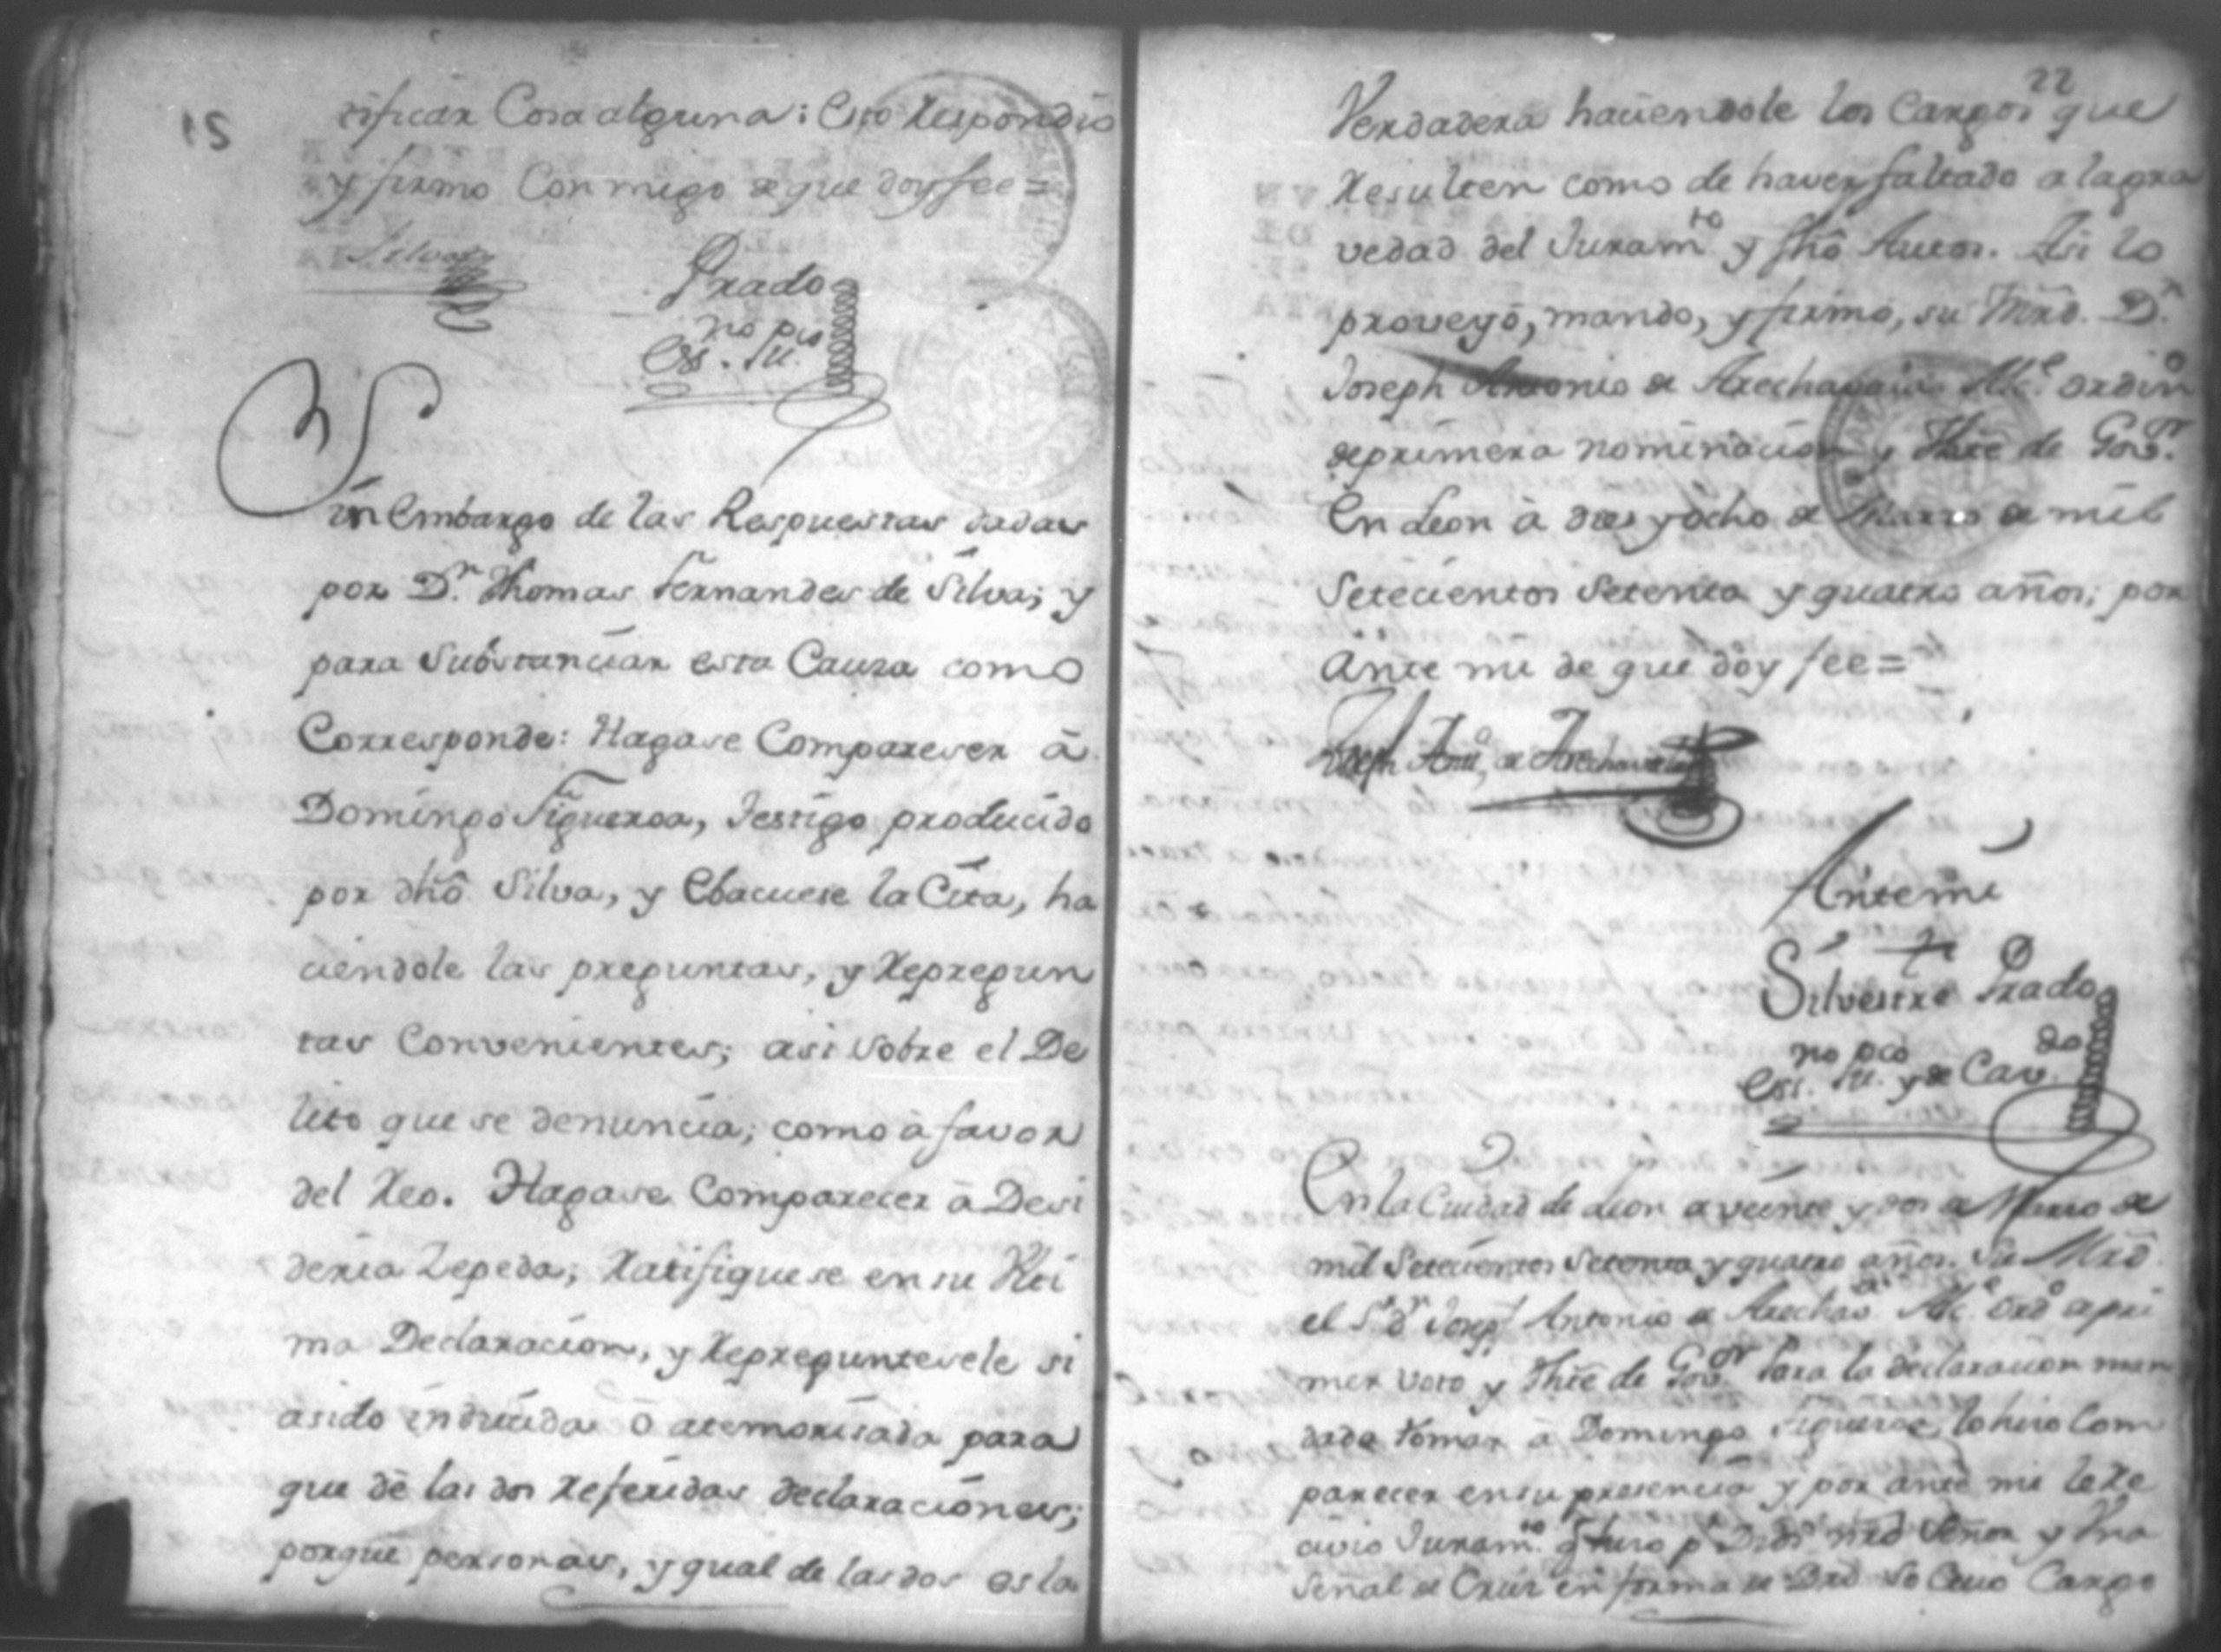 15
tificar Cosa alguna: Esto Respondio
y firmo Conmigo de que doy fee=
Silva
Prado
no pco
Ess. Su.
Sin Embargo de las Respuestas dadas
por Dn. Thomas Fernandes de Silva; y
para Substanciar esta Causa como
Corresponde: Hagase Compareser â
Domingo Figueroa, Testigo producido
por dhô Silva, y Ebacuese la Cita, ha
ciendole las preguntas, y Repregun
tas Convenientes; asi sobre el De
lito que se denuncia; como â favor
del Reo. Hagase Comparecer â Desi
deria Zepeda; Ratifiquese en su Ulti
ma Declaracion, y Repreguntesele si
asido inducida ô atemorisada para
que dê las dos Referidas declaraciones;
porque personas, y qual de las dos es la
22
Verdadera haciendole los Cargos que
Resulten como de haver faltado a la gra
vedad del Juramto y dhô Autos. Asi lo
proveyô, mando, y firmo, su Mrd. Dn.
Joseph Antonio de Arechavala Alce. ordino
de primera nominacion y Thte de Govor.
En Leon â dies y ocho de Marzo de mil
Setecientos Setenta y quatro años; por
Ante mi de que doy fee=
Joseph Anto. de Arechavala
Antemi
Silvestre Prado
no pco do
Ess. Su. y de Cav.
En la Ciudad de Leon a veinte y dos de Marzo de
mil Setecientos Setenta y quatro años. Su Mrd
el Sr. Dn Joseph Antonio de Arechava Alce. Ordo de pri
mer voto y Thte de Govor. Para la declaracion man
dada tomar â Domingo Figueroa, lo hiso Com
parecer en su presencia y por ante mi le Re
civio Juramto. q. hiso pr. Dios nro Señor y Una
Señal de Cruz en forma de Dro So Cuio Cargo